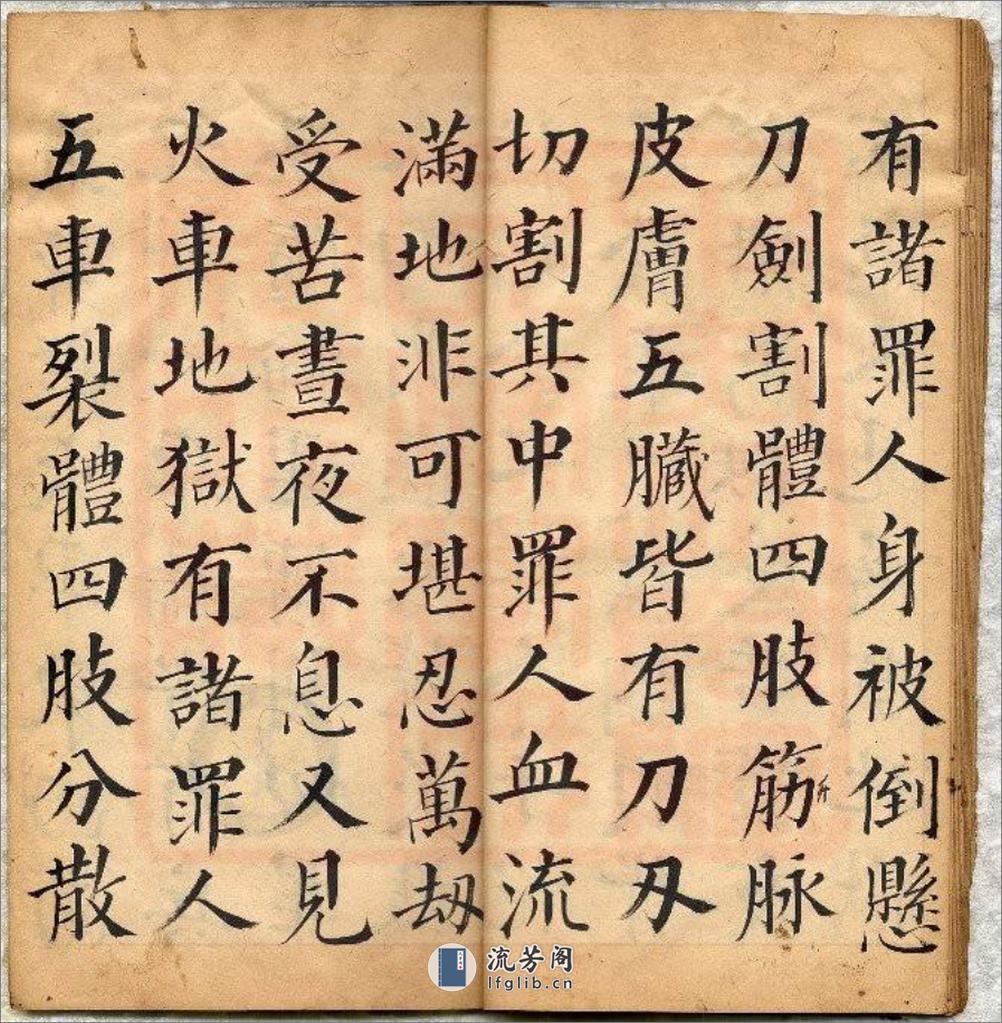 有諸罪人身被倒懸
刀劍割體四肢筋脉
斤
皮膚五臟皆有刀刃
切割其中罪人血流
滿地非可堪忍萬刼
受苦晝夜不息又見
火車地獄有諸罪人
五車裂體四肢分散
流芳阁
lfglib.cn